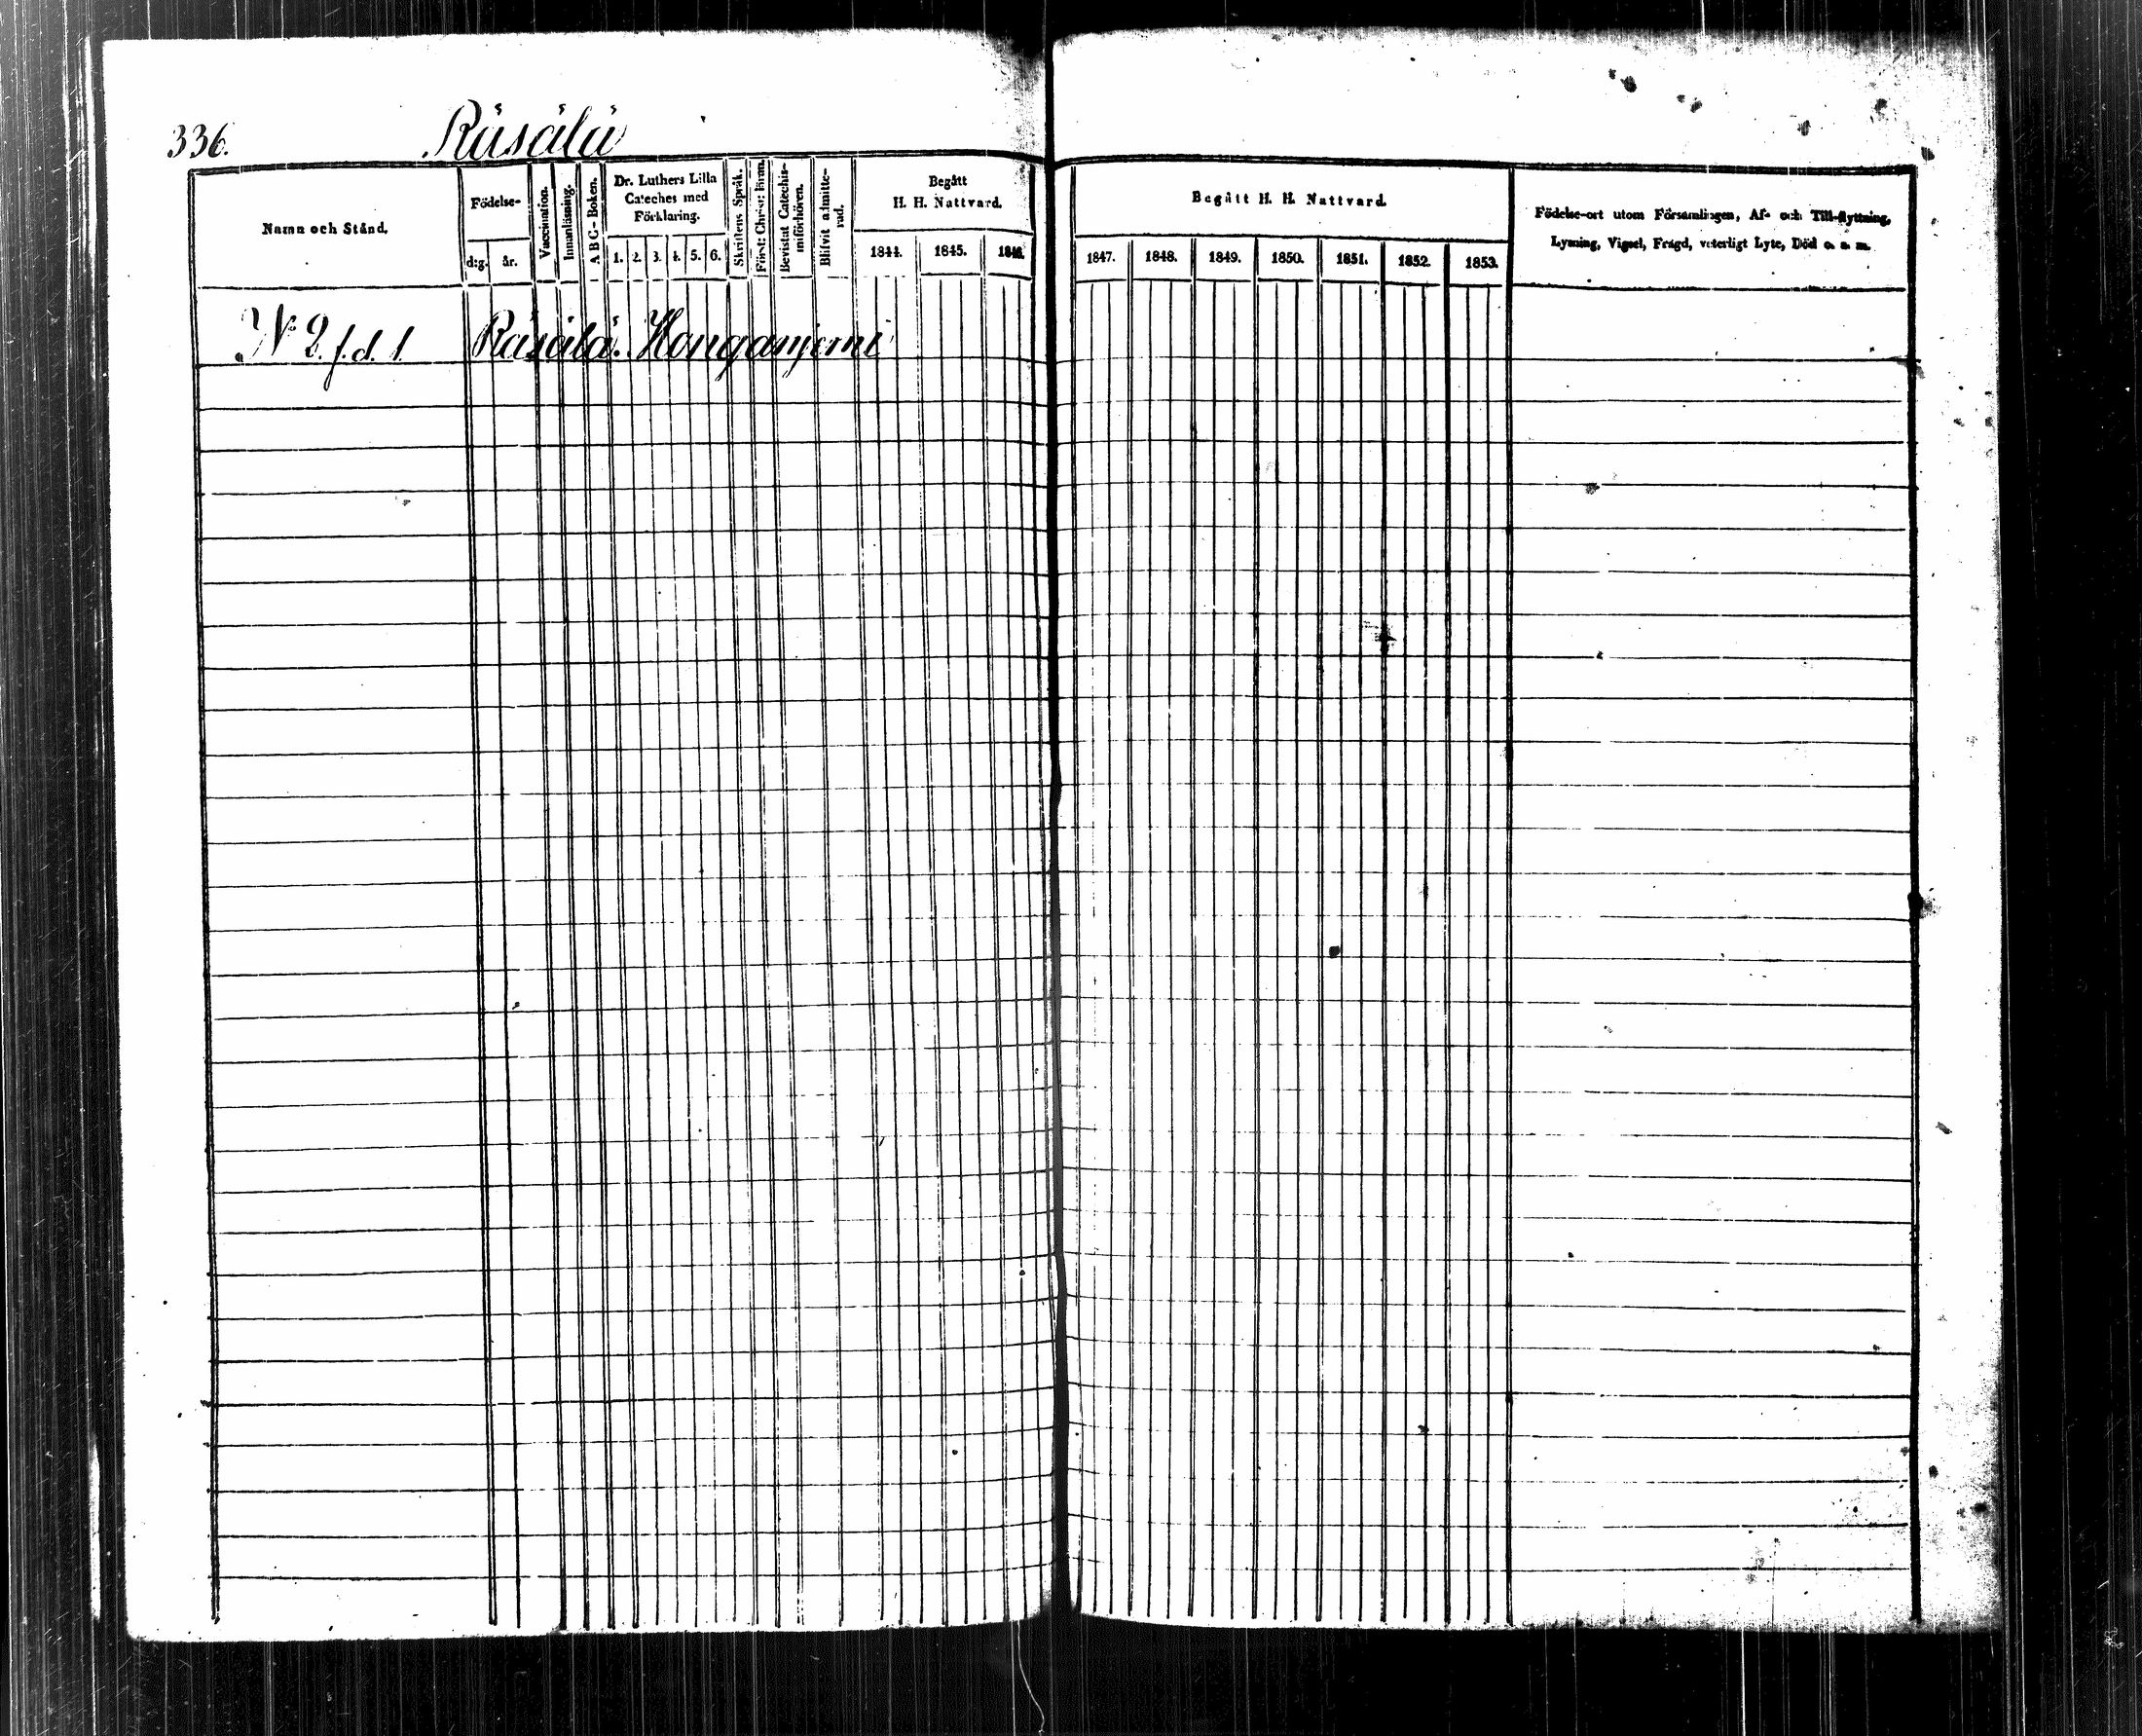 336. Räsälä
Namn och Stånd.
Födelse-
d:g. år.
Vaccination.
Innanläsning.
A B C-Boken.
Dr. Luthers Lilla
Cateches med
Förklaring.
1. 2. 3. 4. 5. 6.
Skriftens Språk.
Först: Christ: läran.
Bevistat Catechis-
miförhören.
Blifvit admitte-
rad.
Begått
H. H. Nattvard.
1844. 1845. 1846.
Begått H. H. Nattvard.
1847. 1848. 1849. 1850. 1851. 1852. 1853.
Födelse-ort utom Församlingen, Af- och Till-flyttning,
Lysning, Vigsel, Frägd, veterligt Lyte, Död o. s. m.
N 2. f. d. 1 Räsälä. Honganjemi